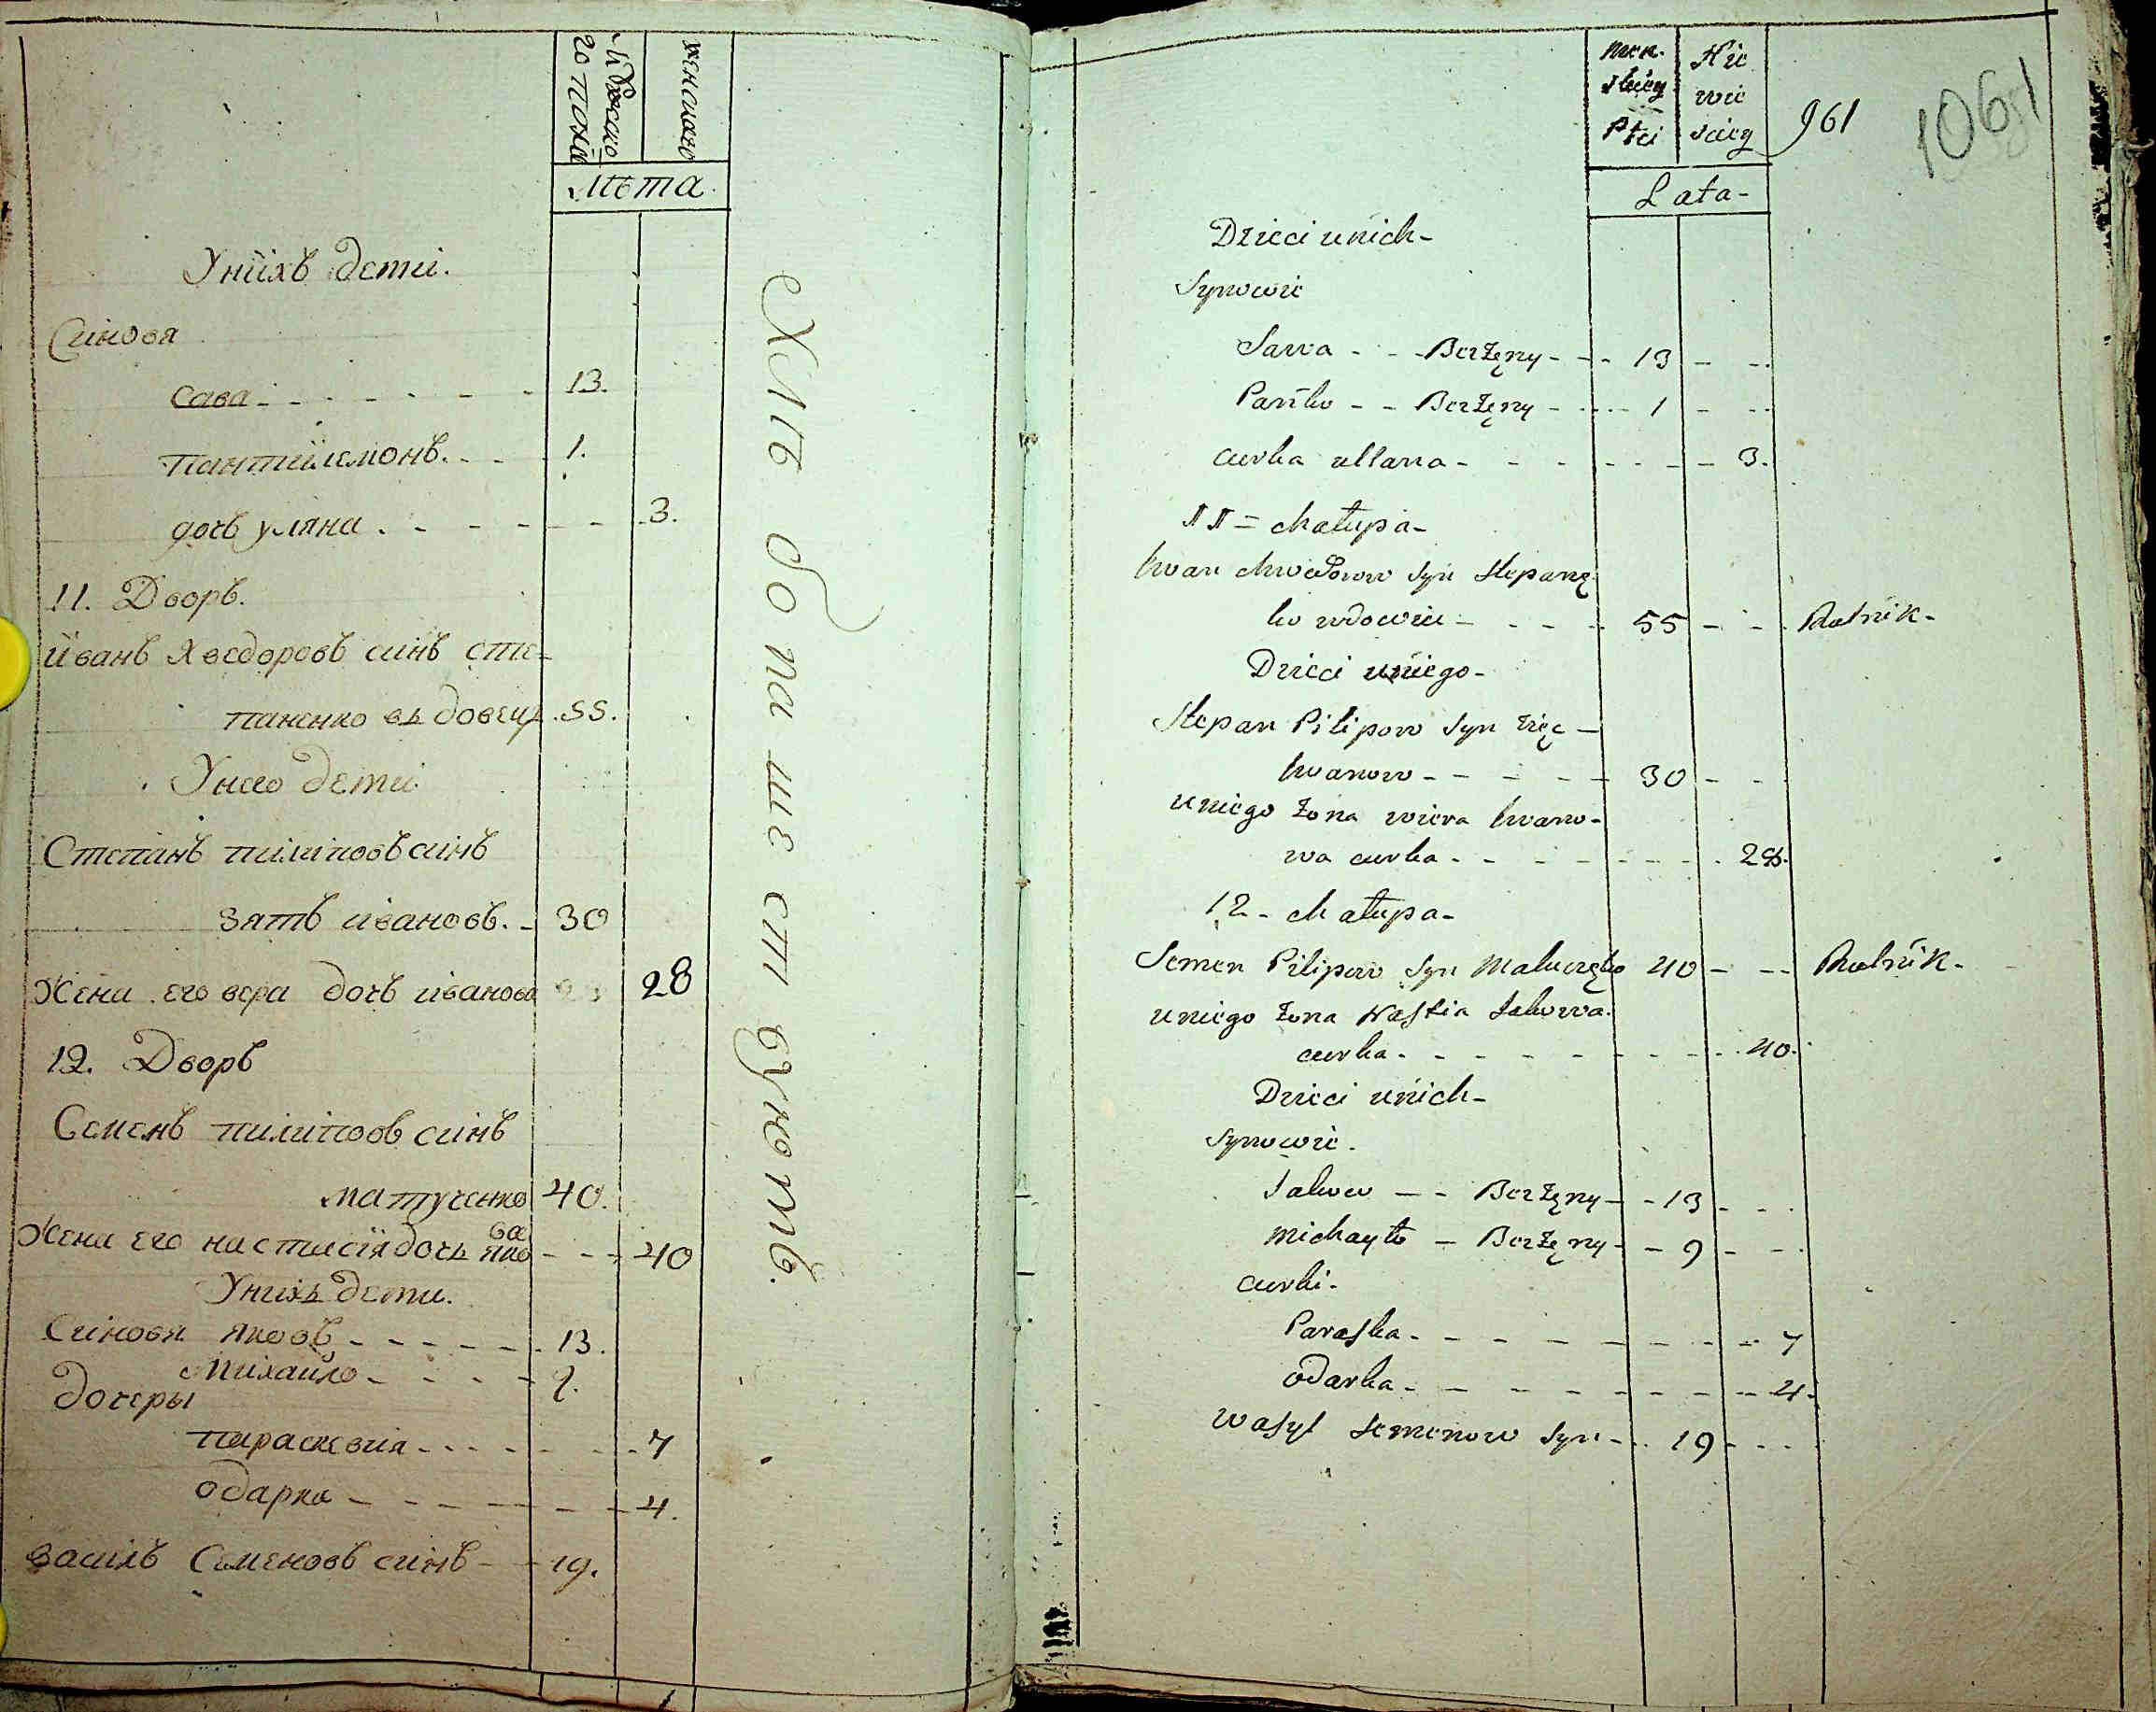 Мужеско
го пола
женскаго
Лѣта.
Унiихъ дети.
Синовя
Сава - - - - - - 13.
Пантиилимонъ. - - 1.
дочъ уляна . - - - - - 3.
11. Дворъ.
иванъ Хведоровъ синъ сте-
паненко въдовецъ . 55.
Унего дети.
Степанъ пилиповъ синъ
зятъ ивановъ. - 30
Жена его вера дочъ иванова 28
12. Дворъ
Семенъ пилиповъ синъ
матученко 40.
Жена его настасiя дочъ яко
ва - - - 40
Унихъ дети.
Синовя яковъ - - - - - 13.
Михайло - - - - 9.
Дочеры
параскевия - - - - - - 7
одарка - - - - - - 4.
василъ Семеновъ синъ - - 19.
Хлѣбопашествуютъ.
men.
skiey
Płci
Nie
wie
sciey
961
1061
Lata -
Dzieci unich -
Synowie
Sawa - - - Bezżęny - - - 13 - - -
Pańko - - Bezżęny - - - 1 - - -
curka ullana - - - - - - - 3.
11 = chałupa -
Iwan chwedorow syn stepanę
ko wdowiec - - - - 55 - - - Rolnik -
Dzieci uniego -
Stepan Pilipow syn zięc -
Iwanow - - - - - 30 - - -
uniego żona wiera Iwano-
wa curka - - - - - - - . 28.
12 - chałupa -
Semen Pilipow syn Matuczęko 40 - - - Rolnik -
uniego żona Nastia Jakowa.
curka - - - - - - - - - 40.
Dzieci unich -
synowie.
Jakow - - Bezżęny - - 13 - - -
michayło - Bezżęny - - 9 - - -
curki -
Paraska - - - - - - - - 7
odarka - - - - - - - - 4.
wasyl semenow syn - - 19 - - -